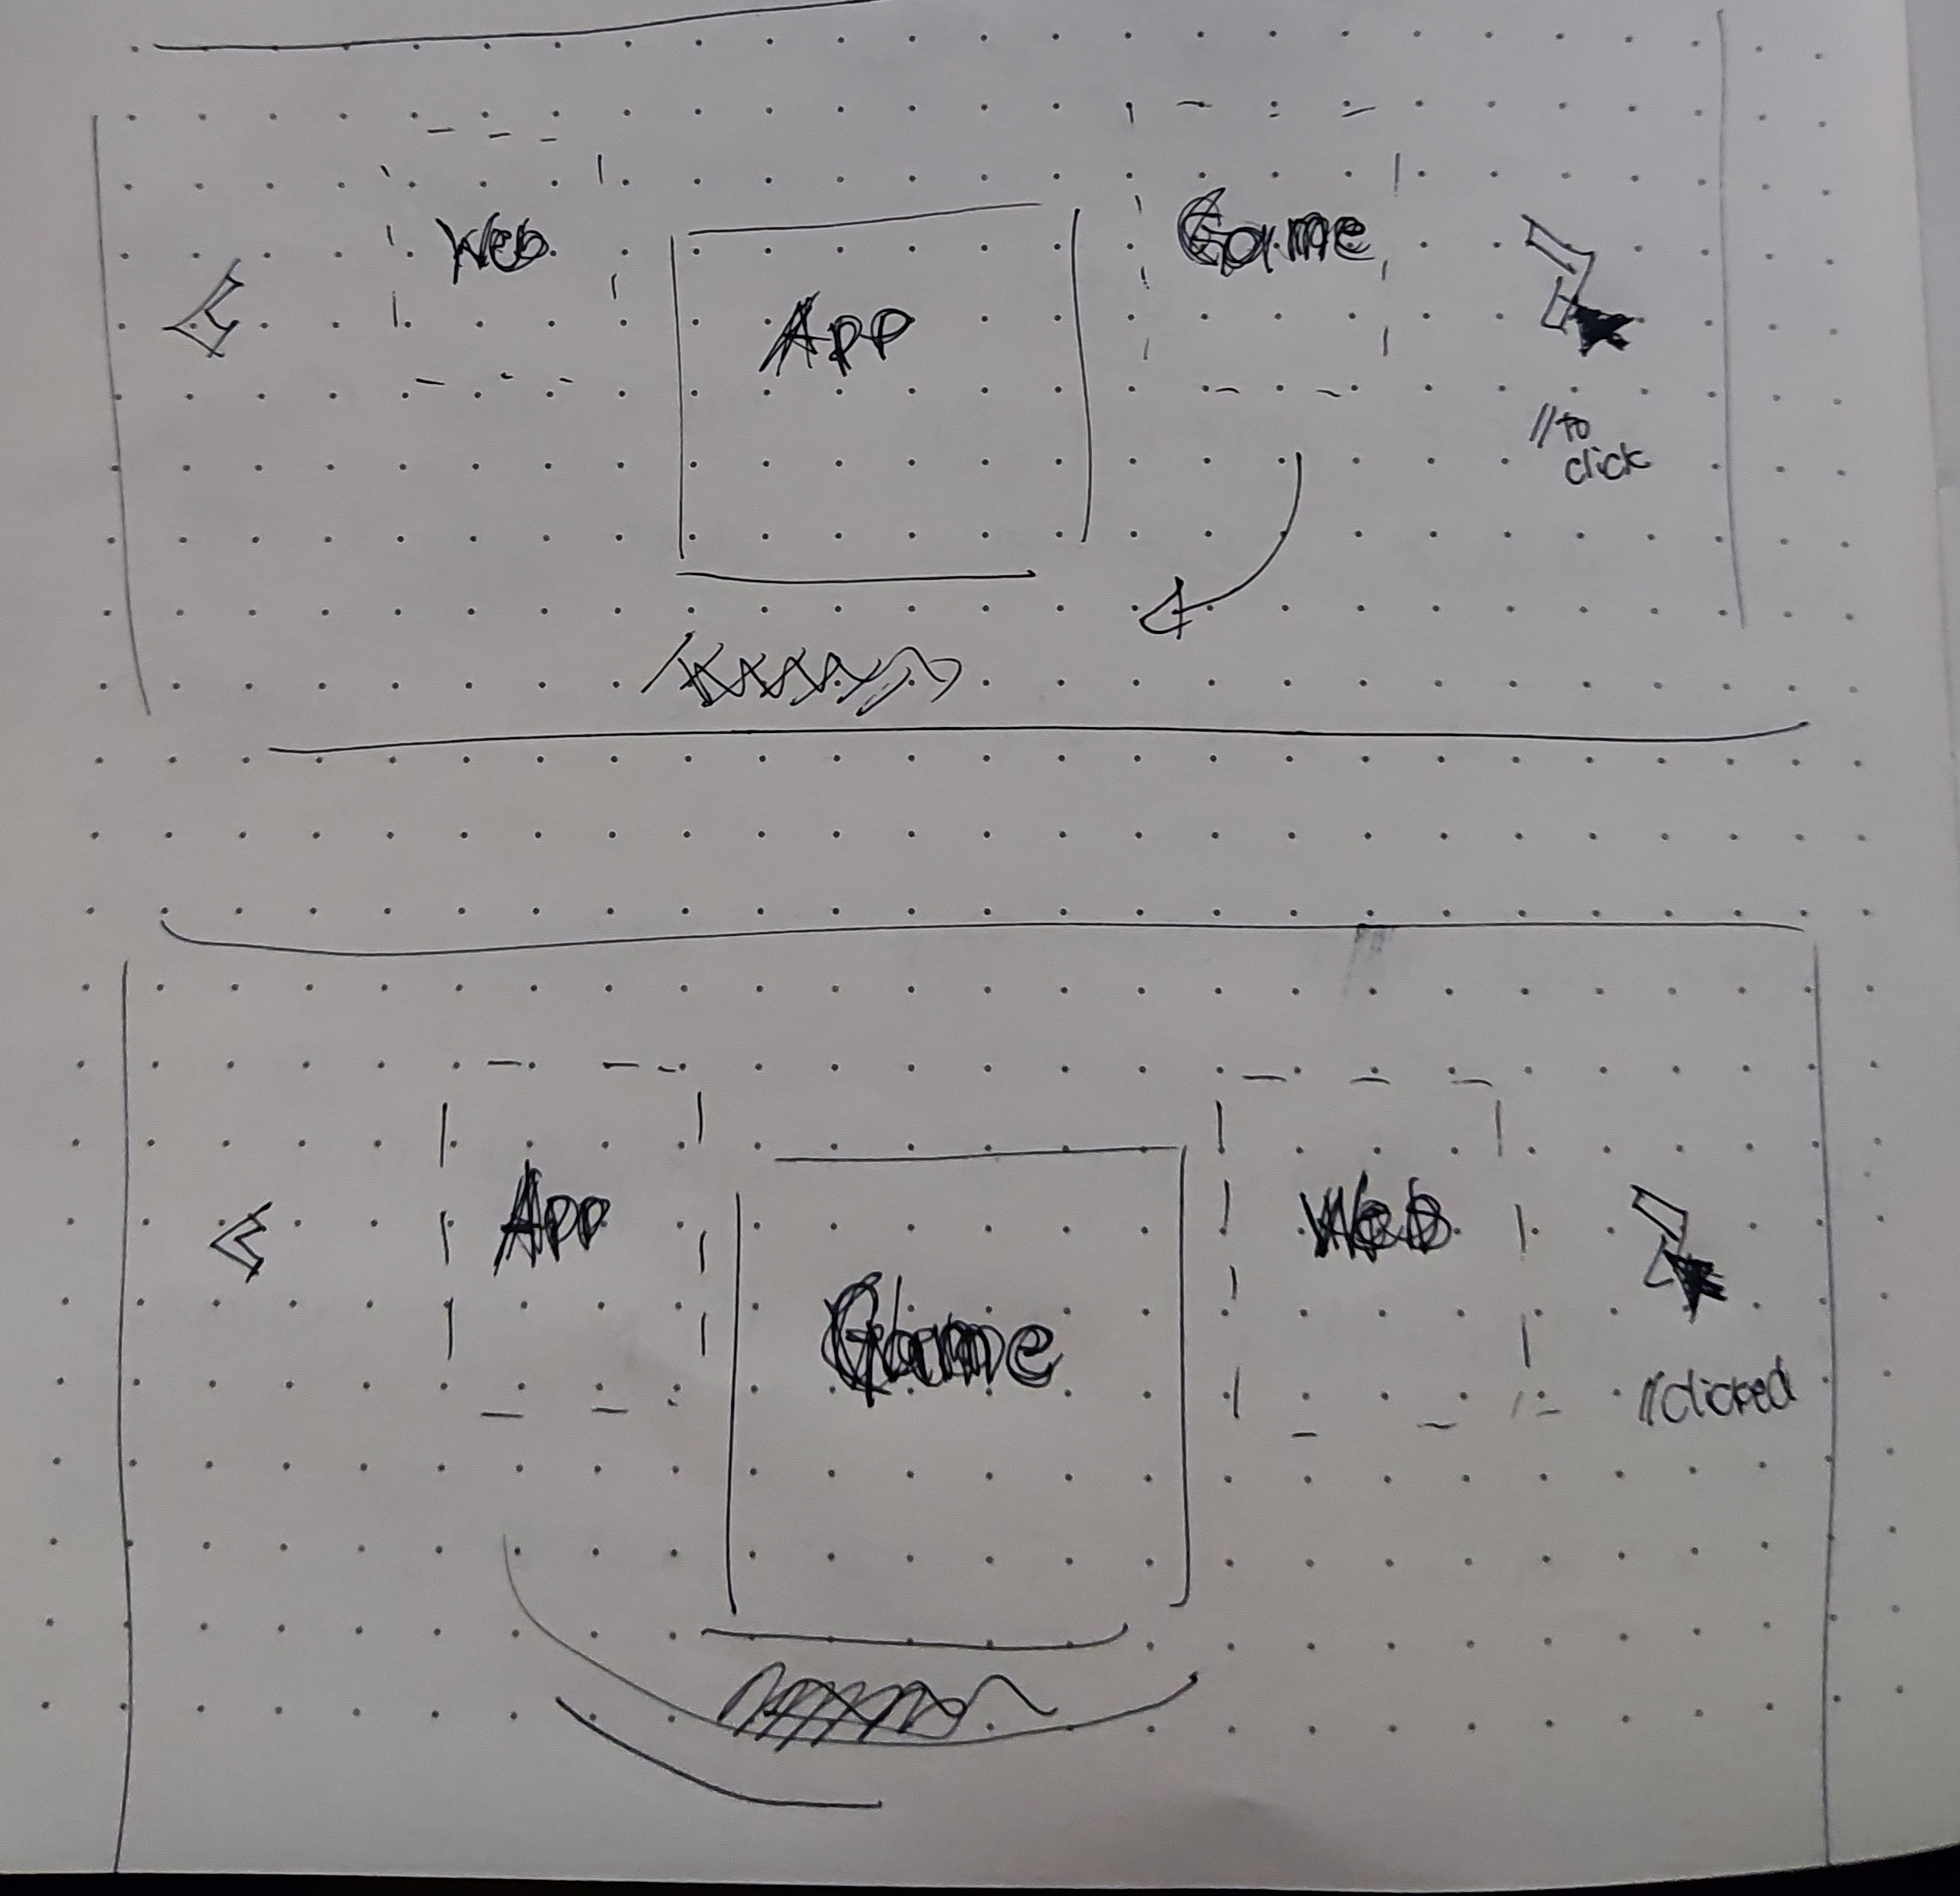 Web
App
Game
//to
click
App
Game
Web
//clicked